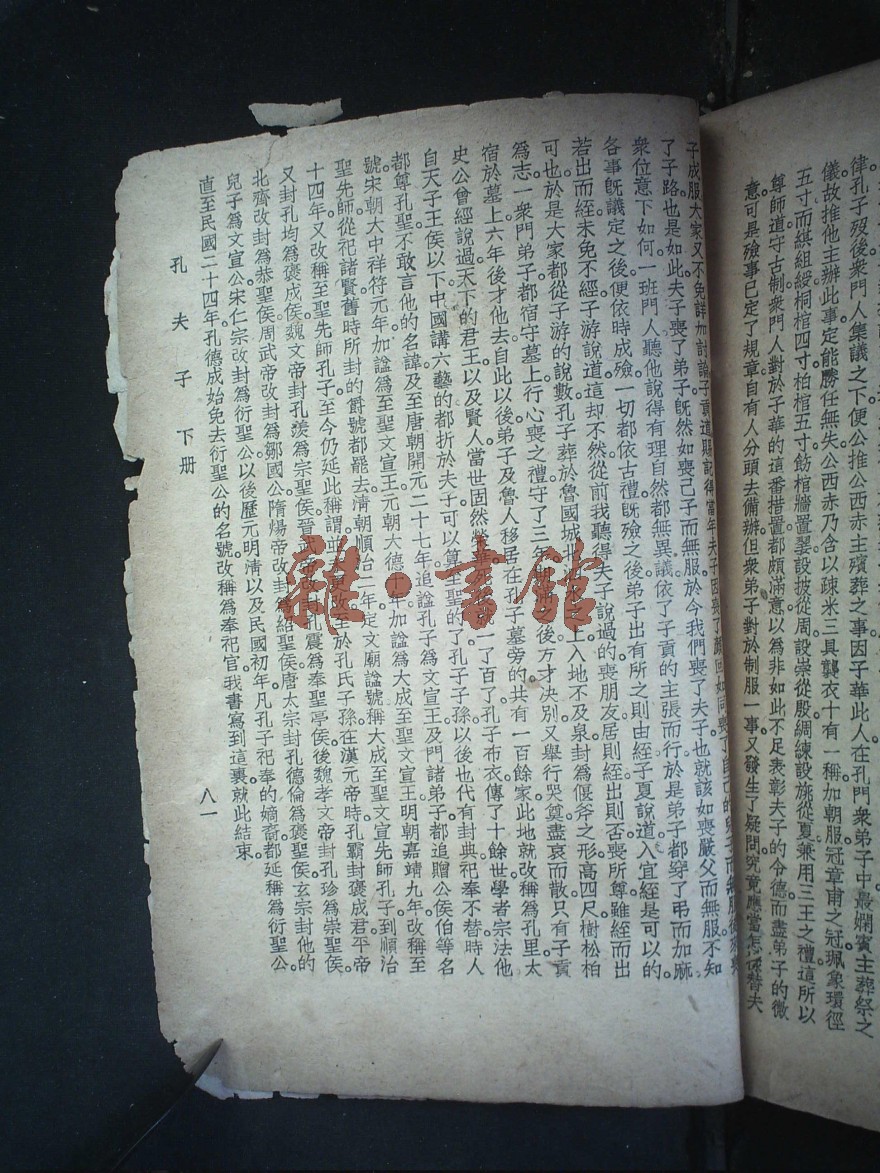 律。孔子歿後衆門人集議之下便公推公西赤主殯葬之事因子華此人在孔門衆弟子中最嫻賓主葬祭之
儀故推他主辦此事定能勝任無失公西赤乃含以疎米三具襲衣十有一稱加朝服冠章甫之冠珮象環徑
五寸而綨組綬桐棺四寸柏棺五寸飭棺牆置翣設披從周設崇從殷綢練設旐從夏兼用三王之禮這所以
尊師道守古制衆門人對於子華的這番措置都頗滿意以為非如此不足表彰夫子的令德而盡弟子的微
意。可是殮事已定了規章自有人分頭去備辦但衆弟子對於制服一事又發生了疑問究竟應當怎樣替夫
子成服大家又不免詳加討論子貢道賜記得當年夫子因喪了顏回如同喪了自己的兒子而無服後來喪
了子路也是如此夫子喪了弟子旣然如喪己子而無服於今我們喪了夫子也就該如喪嚴父而無服不知
衆位意下如何。一班門人聽他說得有理自然都無異議依了子貢的主張而行於是弟子都穿了弔而加麻
各事旣議定之後便依時成殮一切都依古禮旣殮之後弟子出有所之則由絰子夏說道入宜絰是可以的
若出而絰未免不經子游說道這却不然從前我聽得夫子說過的喪朋友居則絰出則否喪所尊雖絰而出
可也。於是大家都從子游的說數孔子葬於魯國城北上入地不及泉封為偃斧之形高四尺樹松柏
為志一衆門弟子都宿守墓上行心喪之禮守了三年後方才决別又舉行哭奠盡哀而散只有子貢
宿於墓上六年後才他去自此以後弟子及魯人移居在孔子墓旁的共有一百餘家此地就改稱為孔里太
史公曾經說過天下的君王以及賢人當世固然一了百了孔子布衣傳了十餘世學者宗法他
自天子王侯以下中國講六藝的都折於夫子可以算至聖的了孔子子孫以後也代有封典祀奉不替時人
都尊孔聖不敢言他的名諱及至唐朝開元二十七年追諡孔子為文宣王及門諸弟子都追贈公侯伯等名
號。宋朝大中祥符元年加諡為至聖文宣王元朝大德十年加諡為大成至聖文宣王明朝嘉靖九年改稱至
聖先師從祀諸賢舊時所封的爵號都罷去清朝順治二年定文廟諡號稱大成至聖文宣先師孔子到順治
十四年又改稱至聖先師孔子至今仍延此稱謂改至於孔氏子孫在漢元帝時孔霸封褒成君平帝
又封孔均為褒成侯魏文帝封孔羨為宗聖侯晉武孔震為奉聖亭侯後魏孝文帝封孔珍為崇聖侯
北齊改封為恭聖侯周武帝改封為鄒國公。隋煬帝改封為紹聖侯唐太宗封孔德倫為褒聖侯玄宗封他的
兒子為文宣公宋仁宗改封為衍聖公以後歷元明清以及民國初年凡孔子祀奉的嫡裔都延稱為衍聖公。
直至民國二十四年孔德成始免去衍聖公的名號改稱為奉祀官。我書寫到這裏就此結束。
孔夫子 下册
八一
雜·書館